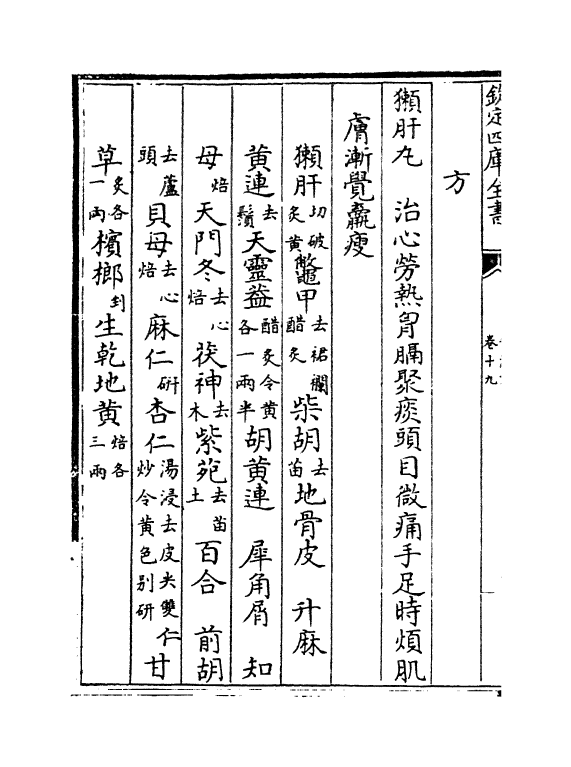 欽定四庫全書
卷十九
方
獺肝丸　治心勞熱胷膈聚痰頭目微痛手足時煩肌
膚漸覺羸瘦
獺肝切破炙黄鼈甲去裙襴醋炙柴胡去苗地骨皮　升麻
黄連去鬚天靈葢醋炙令黄各一兩半胡黄連　犀角屑　知
母焙天門冬去心焙茯神去木紫菀去苗土百合　前胡
去蘆頭貝母去心焙麻仁研杏仁湯浸去皮尖雙仁炒令黄色别研甘
草炙各一兩檳榔剉生乾地黄焙各三兩